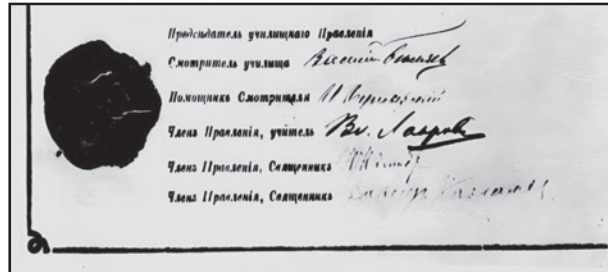 Предсѣдатель училищнаго Правленія
Смотритель училища Василій
Помощникъ Смотрителя И
Членъ Правленія, учитель Вл. Лавровъ
Членъ Правленія, Священникъ
Членъ Правленія, Священникъ